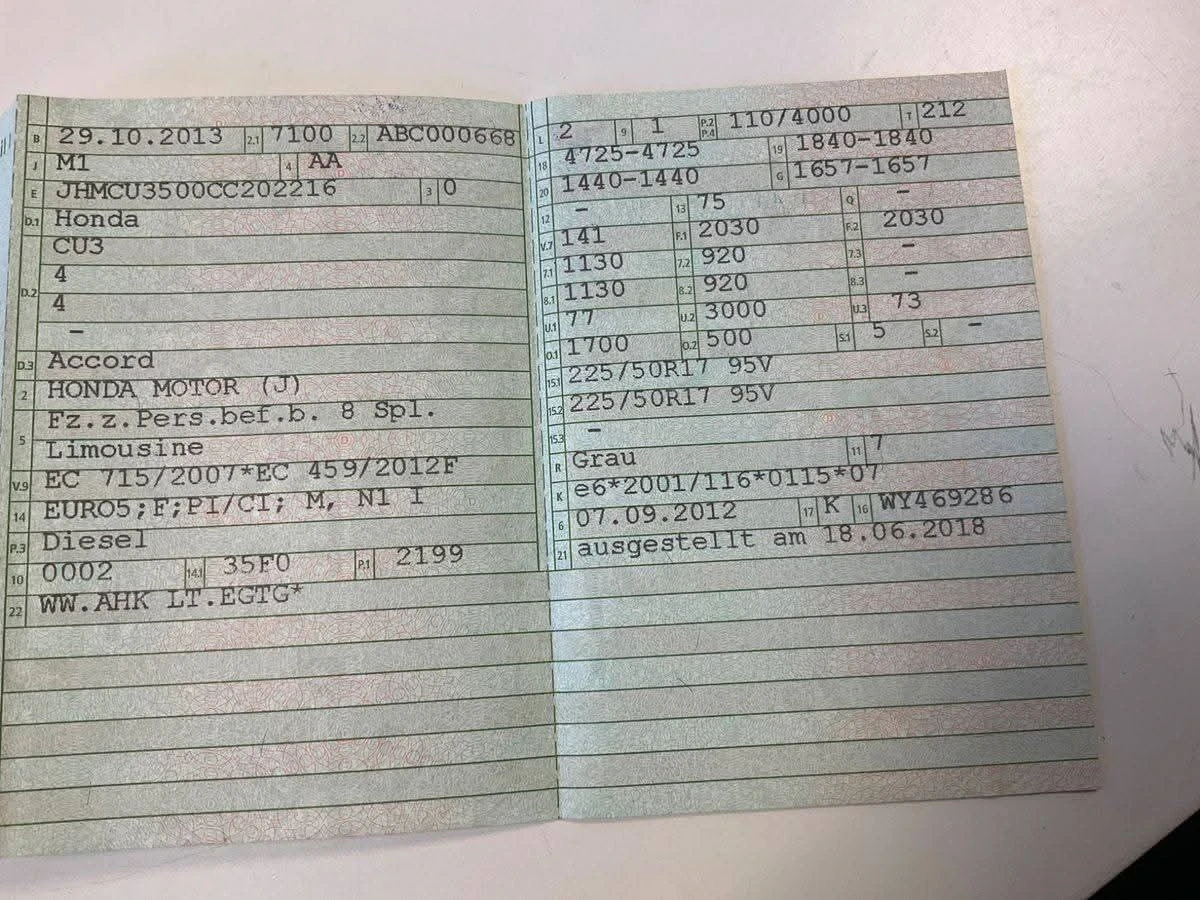 B 29.10.2013 2.1 7100 2.2 ABC000668
J M1 4 AA
E JHMCU3500CC202216 3 0
D.1 Honda
D.2 CU3
4
4
–
D.3 Accord
2 HONDA MOTOR (J)
5 Fz.z.Pers.bef.b. 8 Spl.
Limousine
V.9 EC 715/2007*EC 459/2012F
14 EURO5;F;PI/CI; M, N1 I
P.3 Diesel
10 0002 14.1 35F0 P.1 2199
22 WW.AHK LT.EGTG*
L 2 9 1 P.2 P.4 110/4000 T 212
18 4725-4725 19 1840-1840
20 1440-1440 G 1657-1657
12 – 13 75 Q –
V.7 141 F.1 2030 F.2 2030
7.1 1130 7.2 920 7.3 –
8.1 1130 8.2 920 8.3 –
U.1 77 U.2 3000 U.3 73
O.1 1700 O.2 500 S.1 5 S.2 –
15.1 225/50R17 95V
15.2 225/50R17 95V
15.3 –
R Grau 11 7
K e6*2001/116*0115*07
6 07.09.2012 17 K 16 WY469286
21 ausgestellt am 18.06.2018